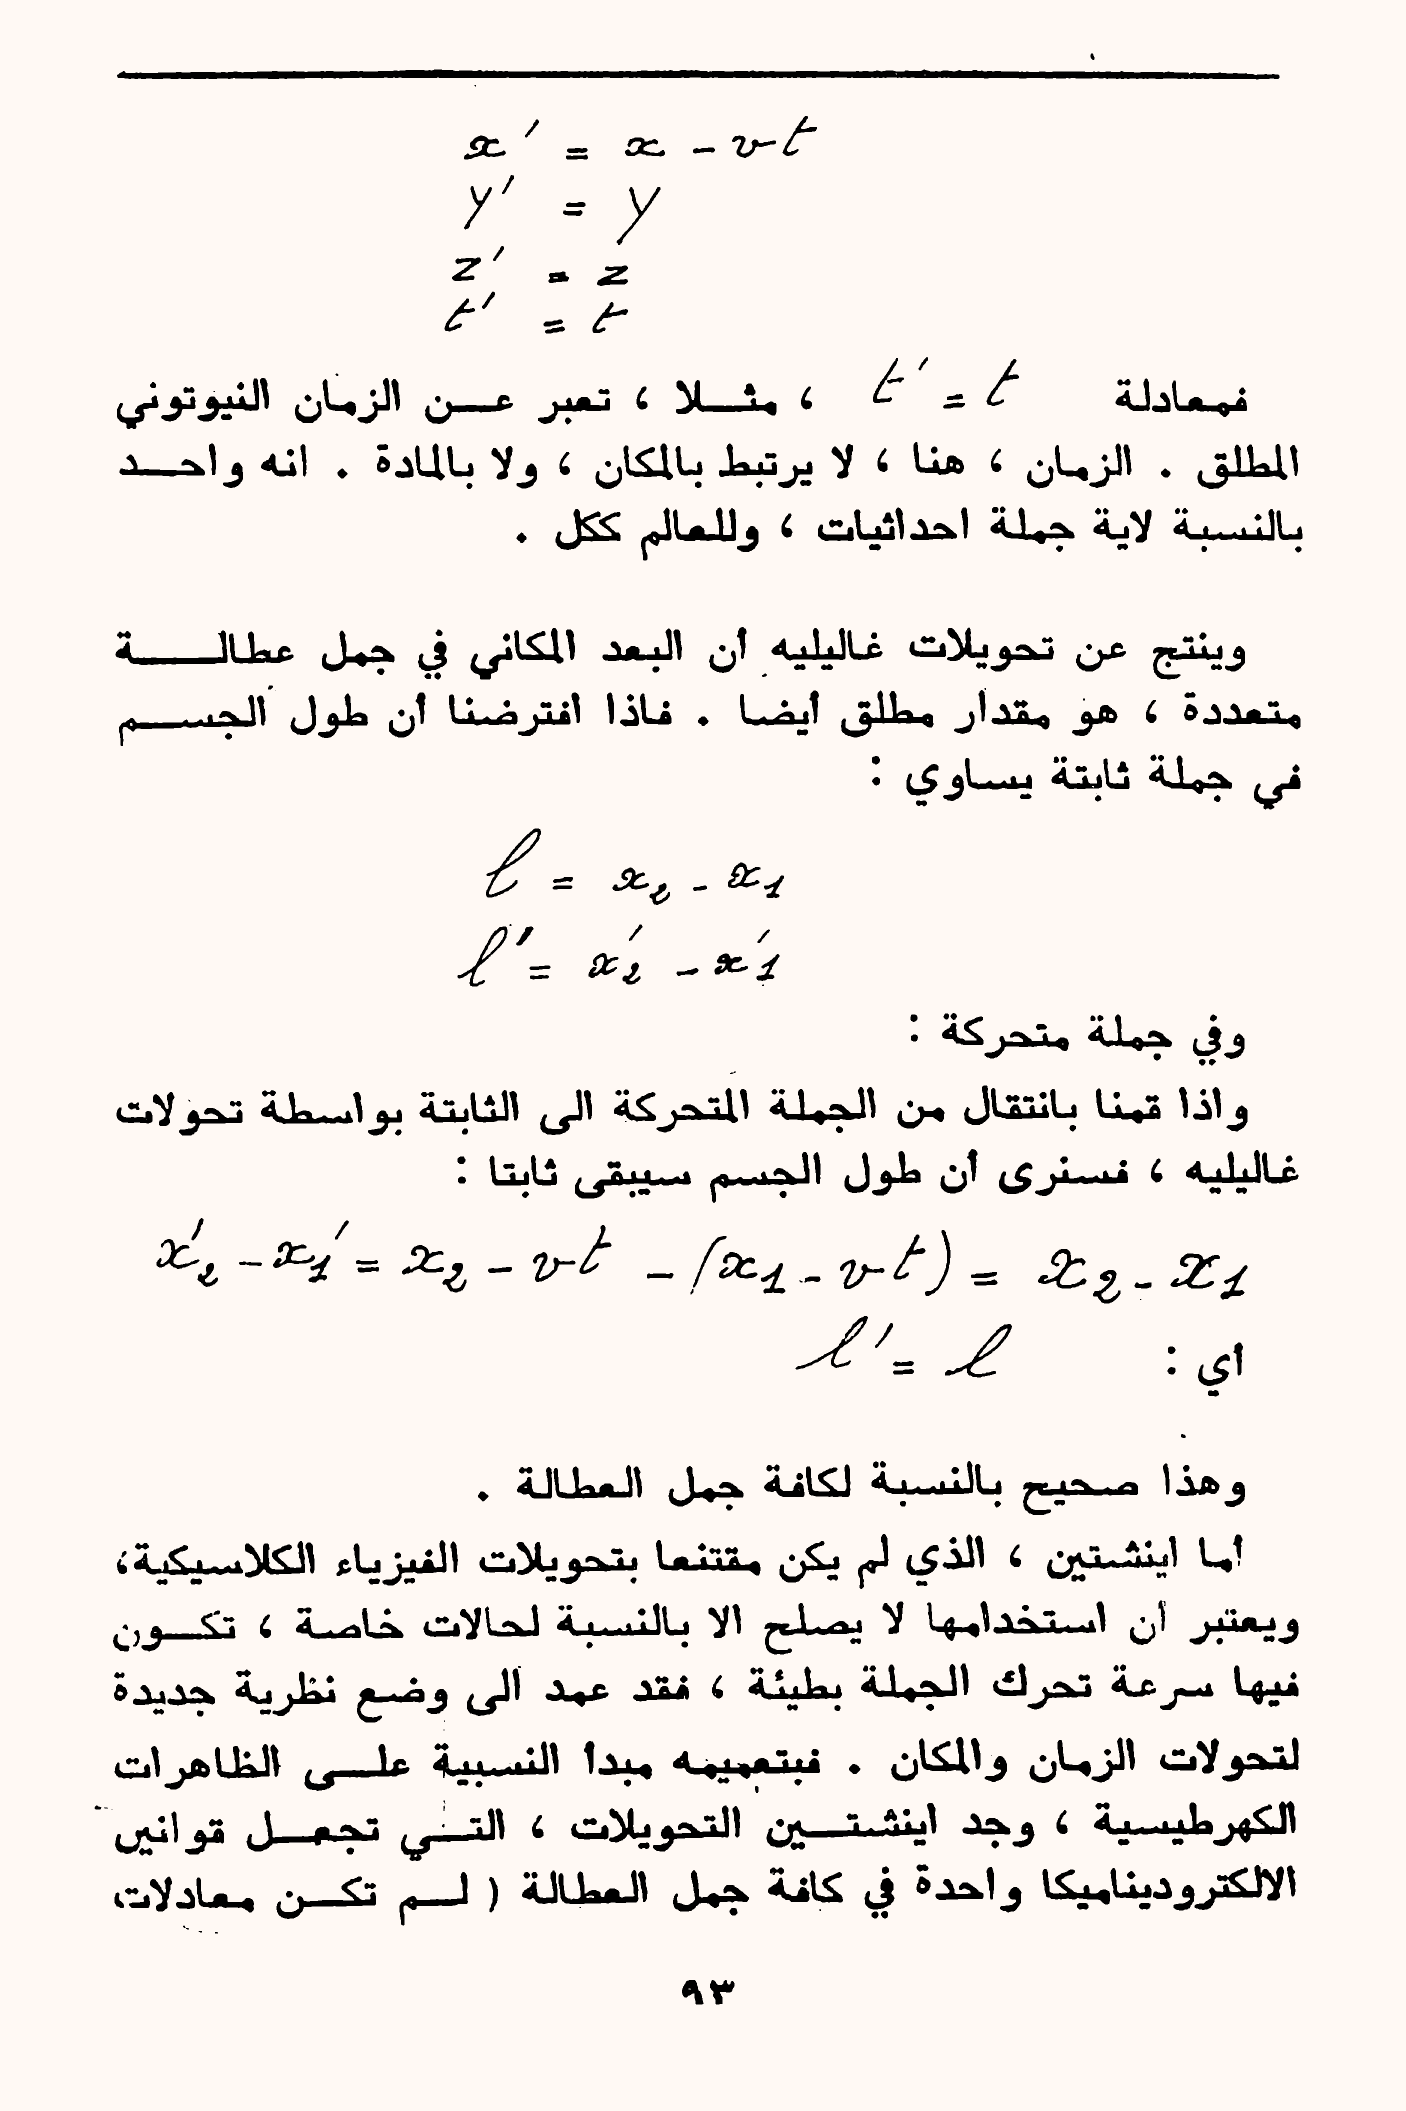 x' = x - vt
y' = y
z' = z
t' = t
فمعادلة t' = t ، مثلا ، تعبر عن الزمان النيوتوني
المطلق . الزمان ، هنا ، لا يرتبط بالمكان ، ولا بالمادة . انه واحد
بالنسبة لاية جملة احداثيات ، وللعالم ككل .
وينتج عن تحويلات غاليليه أن البعد المكاني في جمل عطالة
متعددة ، هو مقدار مطلق أيضا . فاذا افترضنا أن طول الجسم
في جملة ثابتة يساوي :
l = x₂ - x₁
l' = x'₂ - x'₁
وفي جملة متحركة :
واذا قمنا بانتقال من الجملة المتحركة الى الثابتة بواسطة تحولات
غاليليه ، فسنرى أن طول الجسم سيبقى ثابتا :
x'₂ - x₁' = x₂ - vt - (x₁ - vt) = x₂ - x₁
أي : l' = l
وهذا صحيح بالنسبة لكافة جمل العطالة .
أما اينشتين ، الذي لم يكن مقتنعا بتحويلات الفيزياء الكلاسيكية،
ويعتبر أن استخدامها لا يصلح الا بالنسبة لحالات خاصة ، تكون
فيها سرعة تحرك الجملة بطيئة ، فقد عمد الى وضع نظرية جديدة
لتحولات الزمان والمكان . فبتعميمه مبدأ النسبية على الظاهرات
الكهرطيسية ، وجد اينشتين التحويلات ، التي تجعل قوانين
الالكتروديناميكا واحدة في كافة جمل العطالة ( لم تكن معادلات
٩٣